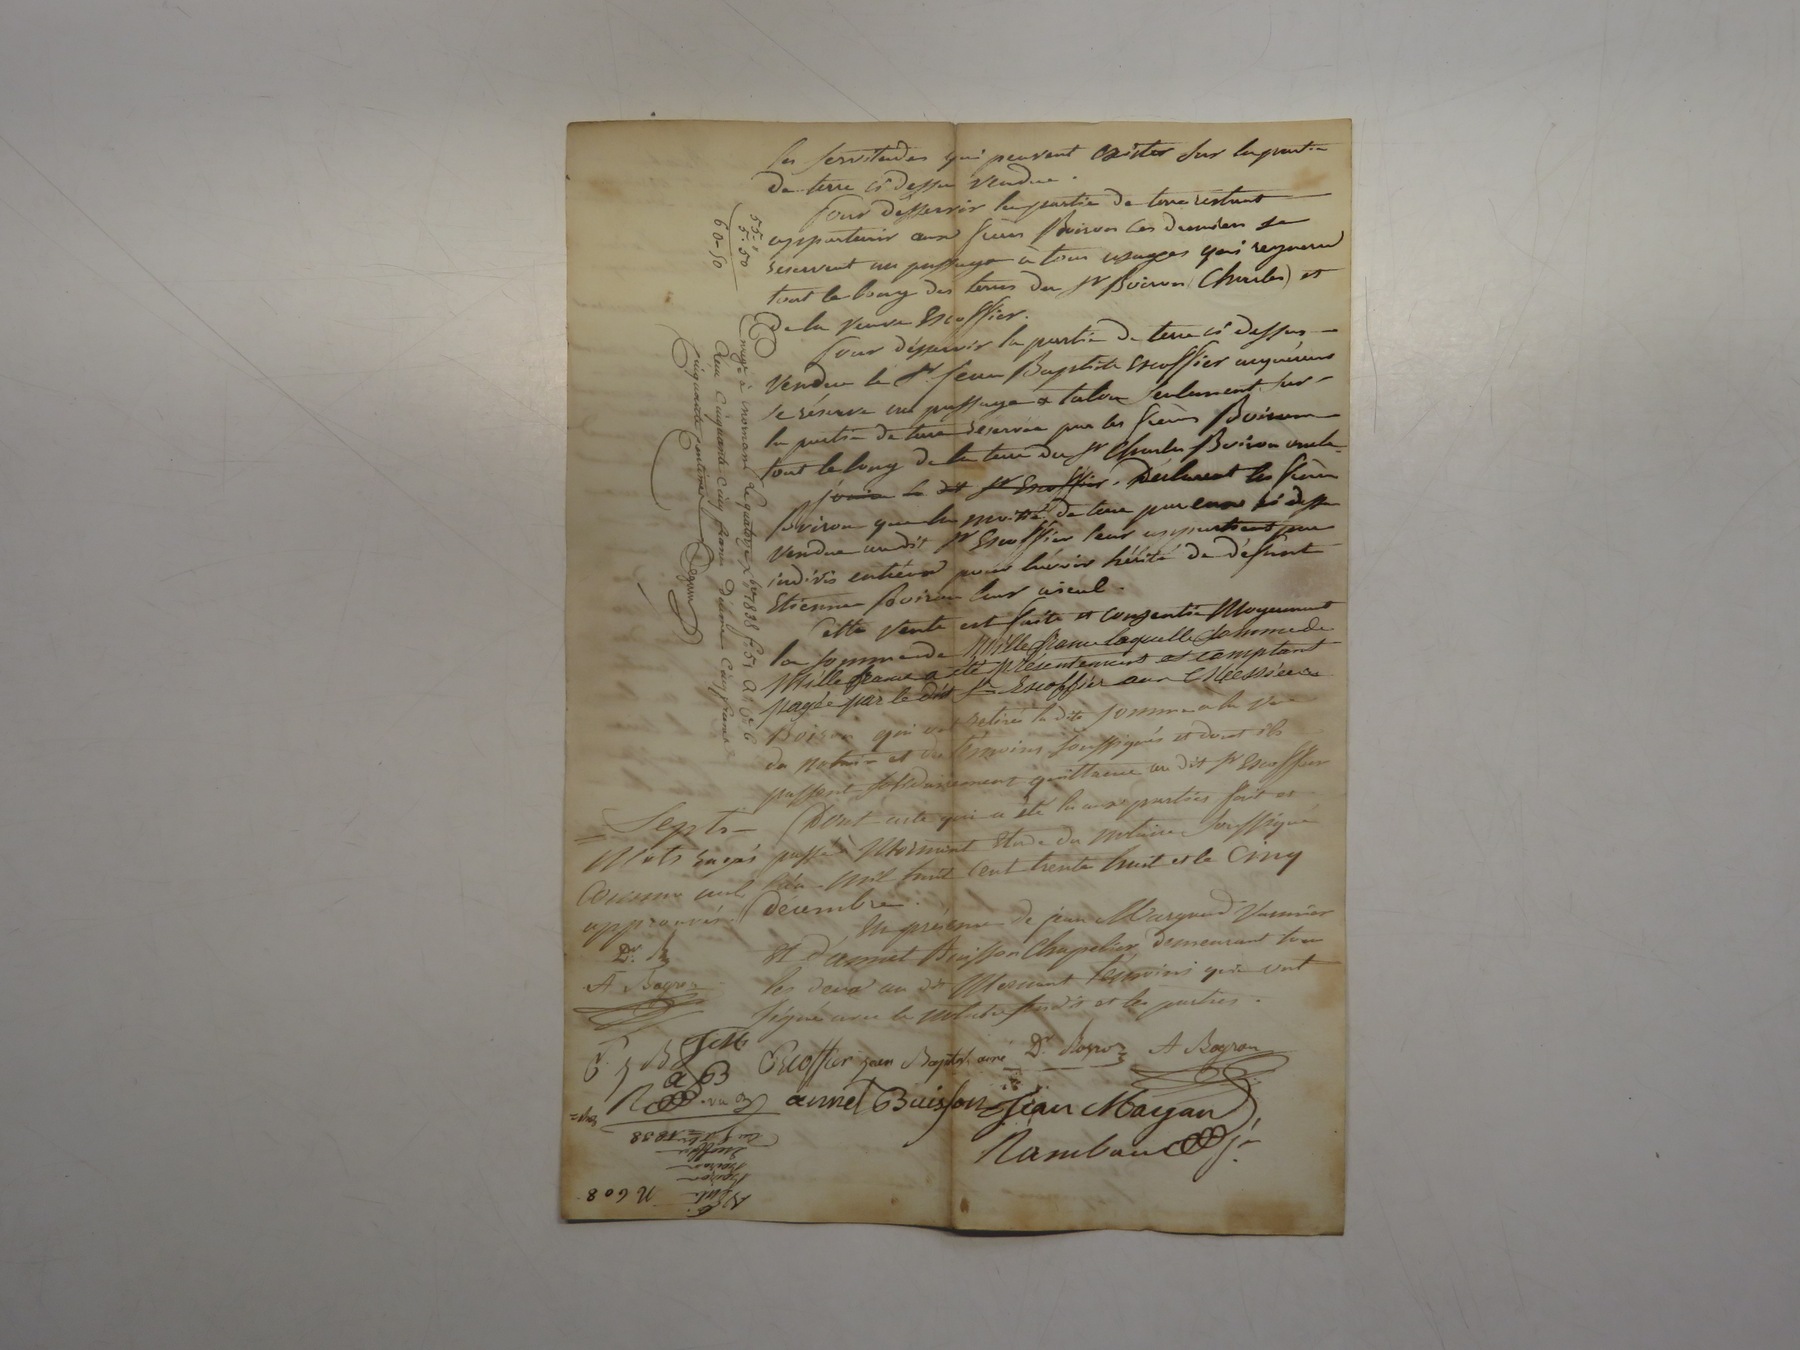 les servitudes qui peuvent exister sur la partie
de terre ci dessus vendue.
Pour desservir la partie de terre restant
appartenir aux frères Boiron ces derniers se
reservent un passage a tous usages qui regnera
tout le long des terres du Sr Boiron (Charles) et
de la veuve Escoffier.
Pour desservir la partie de terre ci dessus
vendue le Sr Jean Baptiste Escoffier acquéreur
se réserve un passage a talon seulement sur
la partie de terre reservée par les frères Boiron
tout le long de la terre du Sr Charles Boiron
le dit Sr Escoffier. Declarent les frères
Boiron que la moitié de terre par eux ci dessus
vendue audit Sr Escoffier leur appartient par
indivis entieux pour l'avoir hérité de défunt
Etienne Boiron leur aieul.
Cette vente est faite et consentie Moyennant
la somme de Mille francs laquelle somme de
Mille francs a été présentement et comptant
payée par le dit Sr Escoffier aux Messieurs
Boiron qui ont retiré la dite somme a la vue
du notaire et des témoins soussignés et dont ils
passent solidairement quittance au dit Sr Escoffier
Dont acte qui a été lu aux parties fait et
passé a Mornant Etude du notaire soussigné
l'an Mil huit cent trente huit et le Cinq
décembre.
En présence de jean
et d'annet Buisson Chapelier demeurant tous
les deux au dit Mornant témoins qui ont
signé avec le notaire susdit et les parties.
Escoffier jean Baptste ainé Dr Boyron A Boyron
annet Buisson Jean Mayan
Rambau Jn
= Septs
Mots rayés
comme nuls
approuvés
Dr. B
A Boyron
E J B
a B
55.
5.50
60-50
Enregé à mornant le quatorze Xbre 1838 fo 51
Reçu cinquante cinq francs Décime cinq francs
cinquante centimes
N 608
1838
Escoffier
Boiron